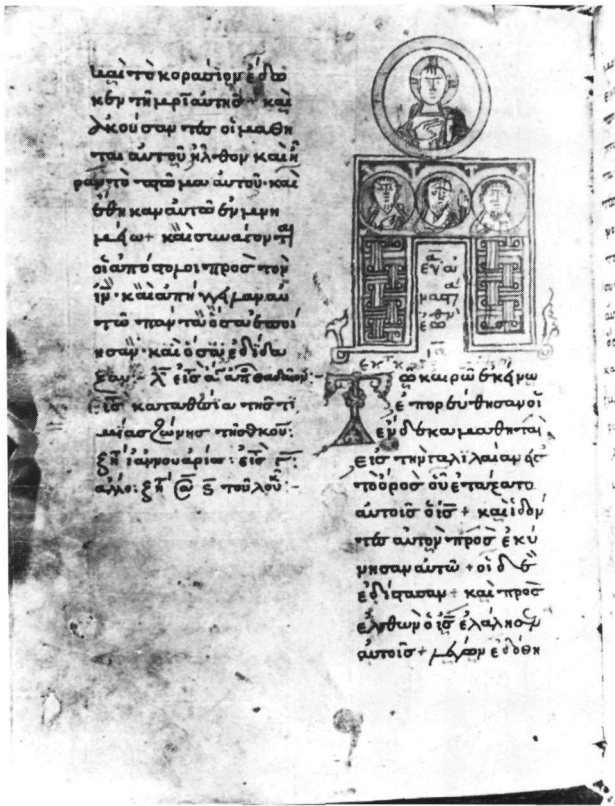 καὶ τὸ κοράσιον ἔδω
κεν τῆ μρὶ αὐτῆσ + καὶ
ἀκούσαντεσ οἱ μαθη
ταὶ αὐτοῦ ἦλθον καὶ ἦ
ραν τὸ πτῶμα αὐτοῦ· καὶ
ἔθηκαν αὐτὸ ἐν μνη
μείω + καὶ συνάγονται
οἱ ἀπόστολοι πρὸσ τὸν
ιν· καὶ ἀπήγγειλαν αὐ
τῶ πάντα ὅσα ἐποί
ησαν· καὶ ὅσα ἐδίδα
ξαν
εἰσ κατάθεσιν τῆσ τι
μίασ ζώνησ τῆσ θκου:
ἰαννουαρίω: εἰσ
ἄλλο: τοῦ λου
εὐα
ματ
ἑωθι
τῶ καιρῶ ἐκείνω
ἐπορεύθησαν οἱ
ἕνδεκα μαθηταὶ
εἰσ τὴν γαλιλαίαν εἰσ
τὸ ὄροσ οὗ ἐτάξατο
αὐτοῖσ ὁ ισ + καὶ ἰδόν
τεσ αὐτὸν προσεκύ
νησαν αὐτῶ + οἱ δὲ
ἐδίστασαν + καὶ προσ
ελθὼν ὁ ισ ἐλάλησεν
αὐτοῖσ + λέγων ἐδόθη